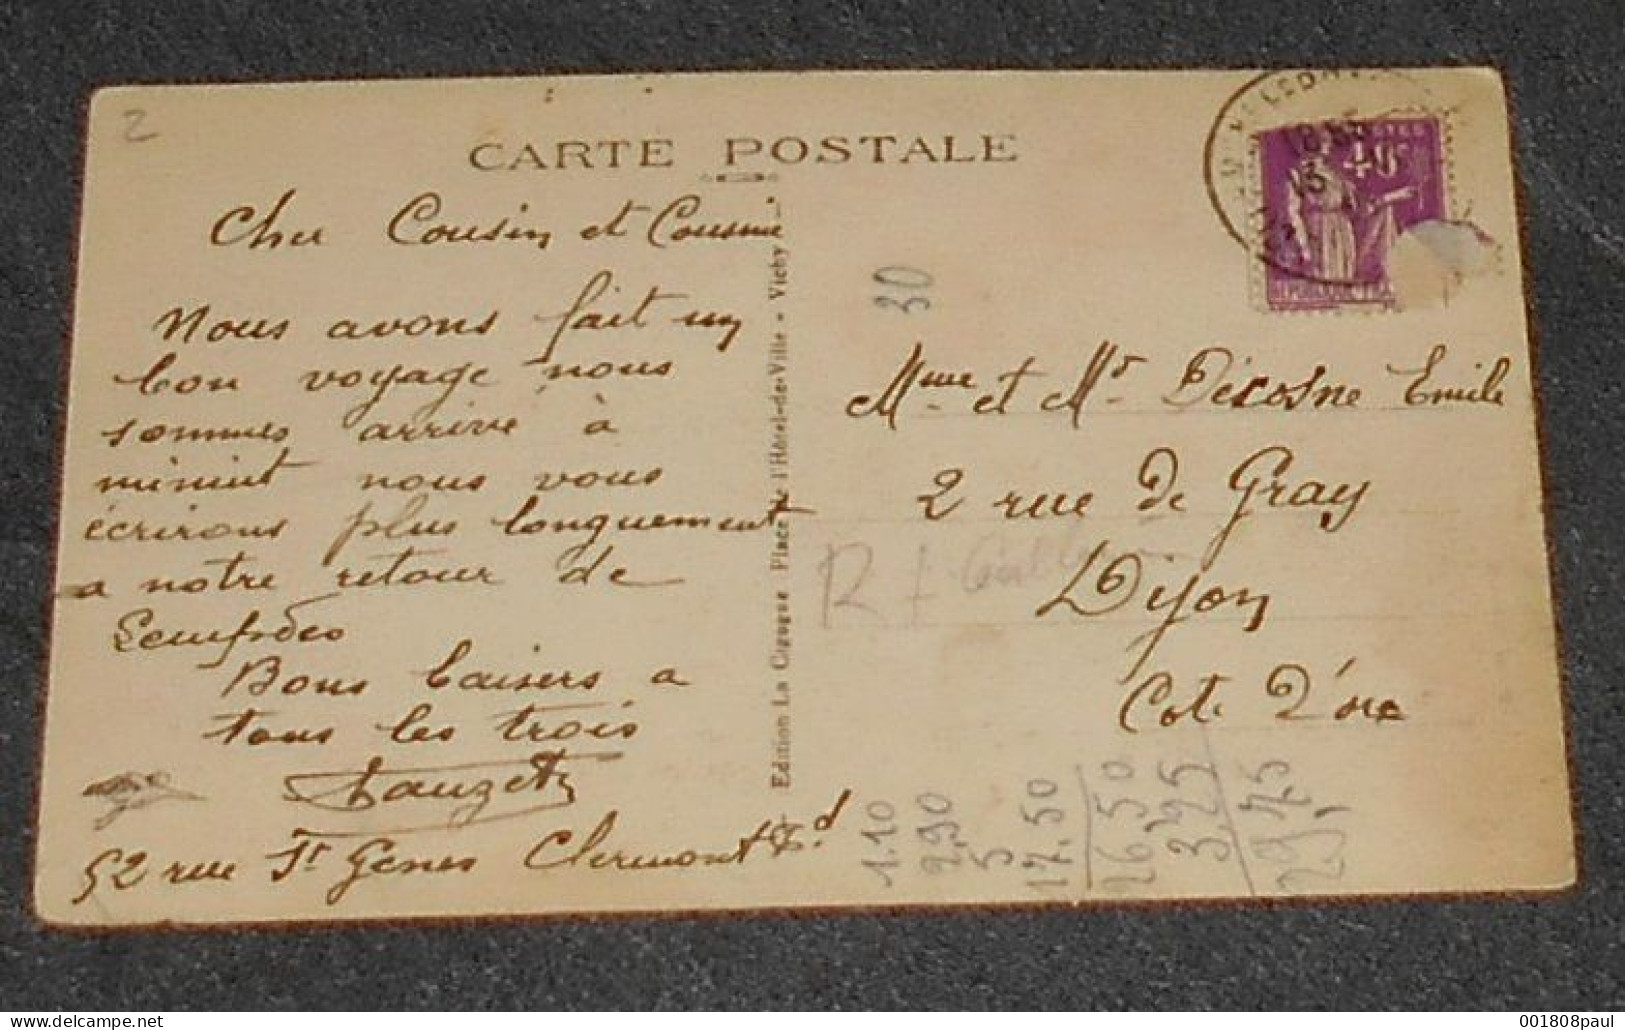 2
CARTE POSTALE
Cher Cousin et Cousine
Nous avons fait un
bon voyage nous
sommes arrivé à
minuit nous vous
écrirons plus longuement
a notre retour de
Lempdes
Bons baisers a
tous les trois
Dauzet
52 rue St Genes Clermont Fd
Edition La Cigogne Place de l'Hôtel-de-Ville - Vichy
40c
30
Mme et Mr Décosne Emile
2 rue de Gray
Dijon
Cote D'or
R +
1.10
2,90
5
17.50
26 50
3,25
29 75
delcampe.net
001808paul